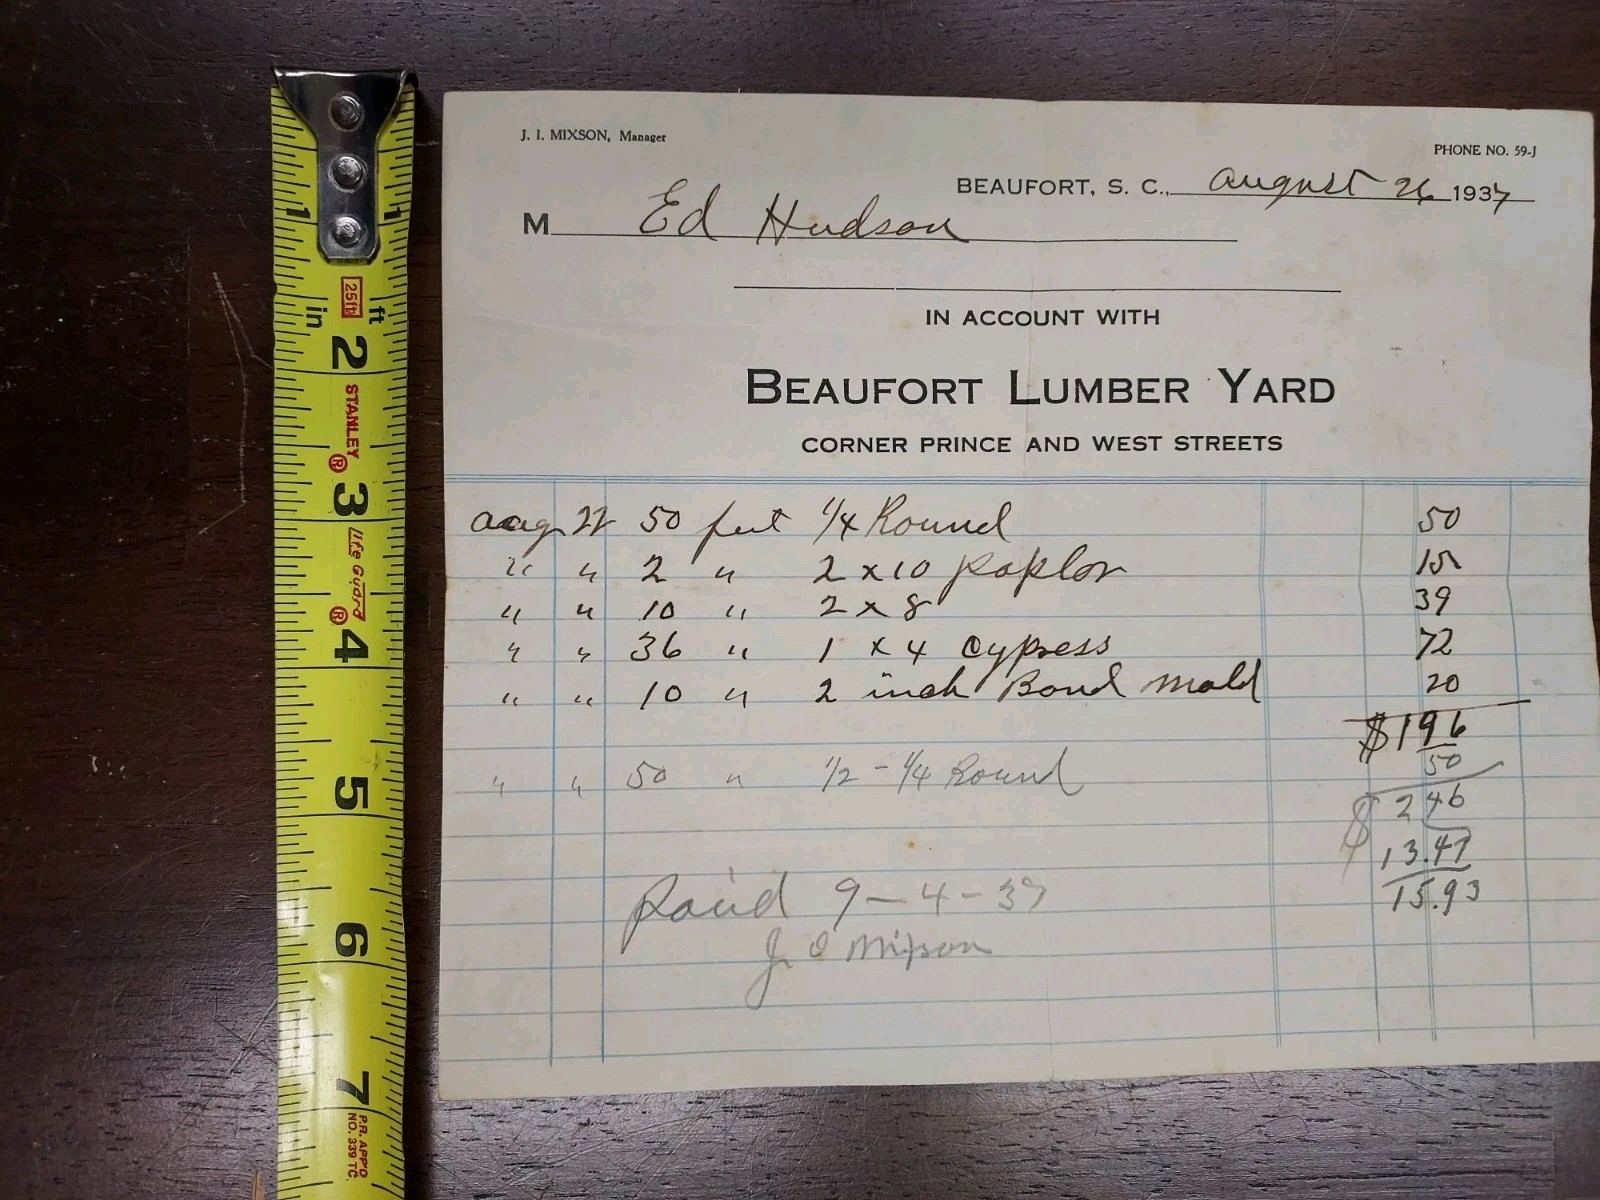 J. I. MIXSON, Manager
PHONE NO. 59-J
BEAUFORT, S. C., August 26 1937
M Ed Hudson
IN ACCOUNT WITH
BEAUFORT LUMBER YARD
CORNER PRINCE AND WEST STREETS
aug 50 feet 1/4 Round 50
" " 2 " 2 x 10 poplor 15
" " 10 " 2 x 8 39
" " 36 " 1 x 4 cypress 72
" " 10 " 2 inch Band mold 20
$ 1 96
" " 50 " 1/2 - 1/4 Round 50
$ 2 46
13.47
15.93
Paid 9-4-37
J. I Mixson
1 1
in 25ft ft
2
STANLEY ®
3
life Guard ®
4
5
6
7
P.R. APP'D
NO. 339 TC.